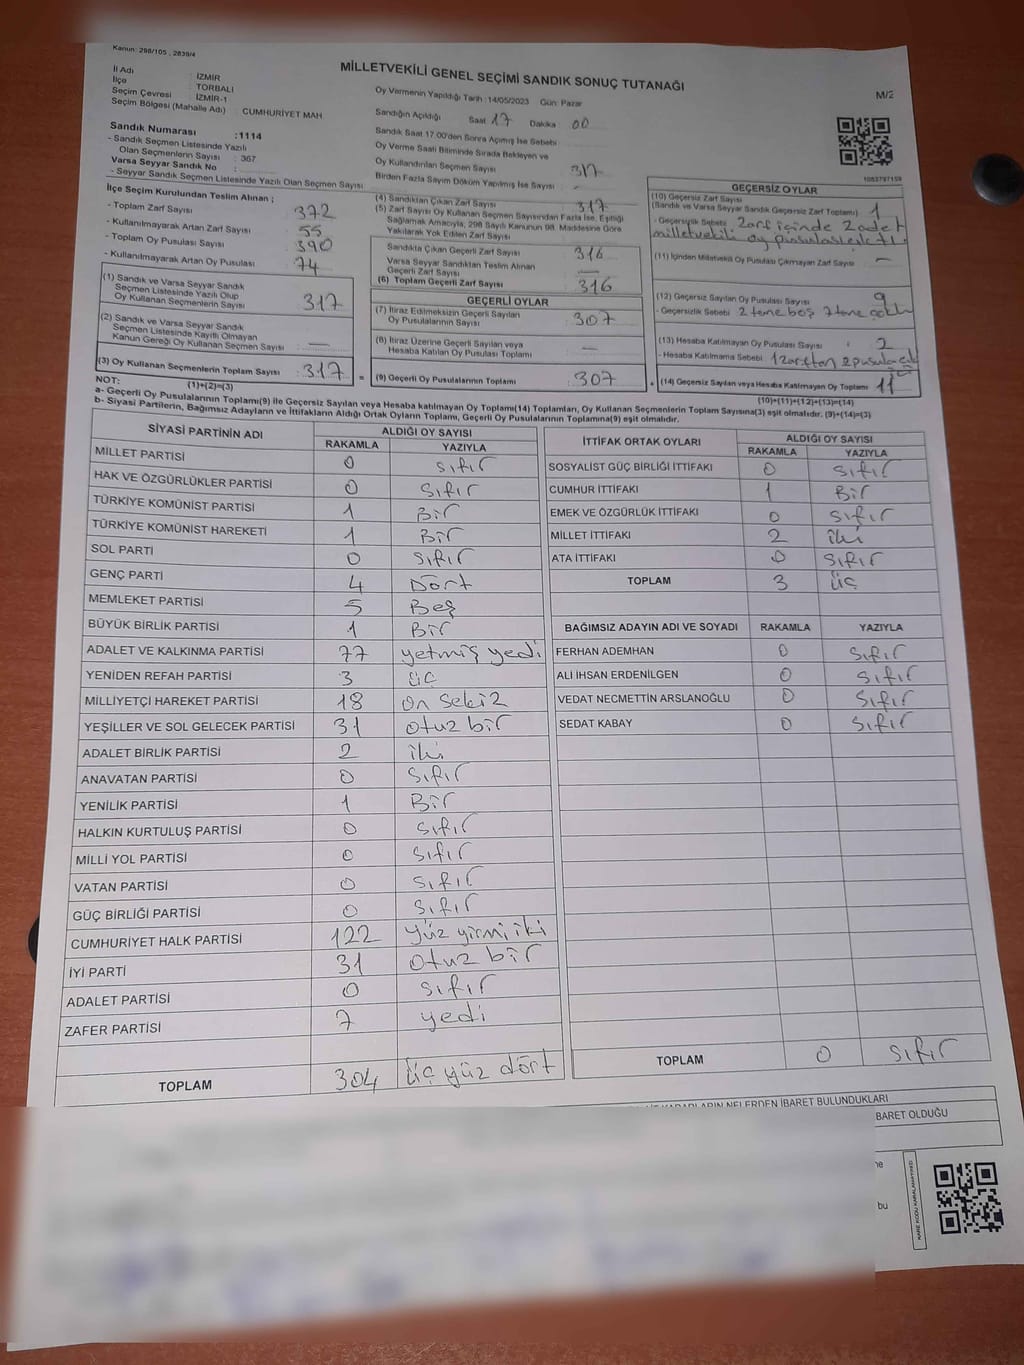 Kanun: 298/105 , 2839/4
MİLLETVEKİLİ GENEL SEÇİMİ SANDIK SONUÇ TUTANAĞI
M/2
İl Adı : İZMİR
İlçe : TORBALI
Seçim Çevresi : İZMİR-1
Seçim Bölgesi (Mahalle Adı) : CUMHURİYET MAH
Oy Vermenin Yapıldığı Tarih :14/05/2023 Gün: Pazar
Sandığın Açıldığı Saat 17 Dakika 00
Sandık Saat 17.00'den Sonra Açılmış İse Sebebi :
Oy Verme Saati Bitiminde Sırada Bekleyen ve
Oy Kullandırılan Seçmen Sayısı : 317
Birden Fazla Sayım Döküm Yapılmış İse Sayısı : -
Sandık Numarası :1114
- Sandık Seçmen Listesinde Yazılı
Olan Seçmenlerin Sayısı : 367
Varsa Seyyar Sandık No :
- Seyyar Sandık Seçmen Listesinde Yazılı Olan Seçmen Sayısı :
İlçe Seçim Kurulundan Teslim Alınan ;
- Toplam Zarf Sayısı : 372
- Kullanılmayarak Artan Zarf Sayısı : 55
- Toplam Oy Pusulası Sayısı : 390
- Kullanılmayarak Artan Oy Pusulası : 74
(1) Sandık ve Varsa Seyyar Sandık
Seçmen Listesinde Yazılı Olup
Oy Kullanan Seçmenlerin Sayısı : 317
(2) Sandık ve Varsa Seyyar Sandık
Seçmen Listesinde Kayıtlı Olmayan
Kanun Gereği Oy Kullanan Seçmen Sayısı : —
(3) Oy Kullanan Seçmenlerin Toplam Sayısı : 317
(1)+(2)=(3)
(4) Sandıktan Çıkan Zarf Sayısı : 317
(5) Zarf Sayısı Oy Kullanan Seçmen Sayısından Fazla İse, Eşitliği
Sağlamak Amacıyla, 298 Sayılı Kanunun 98. Maddesine Göre
Yakılarak Yok Edilen Zarf Sayısı :
Sandıkta Çıkan Geçerli Zarf Sayısı : 316
Varsa Seyyar Sandıktan Teslim Alınan
Geçerli Zarf Sayısı : —
(6) Toplam Geçerli Zarf Sayısı : 316
GEÇERLİ OYLAR
(7) İtiraz Edilmeksizin Geçerli Sayılan
Oy Pusulalarının Sayısı : 307
(8) İtiraz Üzerine Geçerli Sayılan veya
Hesaba Katılan Oy Pusulası Toplamı : —
= (9) Geçerli Oy Pusulalarının Toplamı : 307
1083797159
GEÇERSİZ OYLAR
(10) Geçersiz Zarf Sayısı
(Sandık ve Varsa Seyyar Sandık Geçersiz Zarf Toplamı) : 1
- Geçersizlik Sebebi : Zarf içinde 2 adet
milletvekili oy pusulası
(11) İçinden Milletvekili Oy Pusulası Çıkmayan Zarf Sayısı : —
(12) Geçersiz Sayılan Oy Pusulası Sayısı : 9
- Geçersizlik Sebebi : 2 tane boş 7 tane
(13) Hesaba Katılmayan Oy Pusulası Sayısı : 2
- Hesaba Katılmama Sebebi : 1 zarftan 2 pusula
+ (14) Geçersiz Sayılan veya Hesaba Katılmayan Oy Toplamı : 11
(10)+(11)+(12)+(13)=(14)
NOT:
a- Geçerli Oy Pusulalarının Toplamı(9) ile Geçersiz Sayılan veya Hesaba katılmayan Oy Toplamı(14) Toplamları, Oy Kullanan Seçmenlerin Toplam Sayısına(3) eşit olmalıdır. (9)+(14)=(3)
b- Siyasi Partilerin, Bağımsız Adayların ve İttifakların Aldığı Ortak Oyların Toplamı, Geçerli Oy Pusulalarının Toplamına(9) eşit olmalıdır.
SİYASİ PARTİNİN ADI ALDIĞI OY SAYISI
RAKAMLA YAZIYLA
MİLLET PARTİSİ 0 sıfır
HAK VE ÖZGÜRLÜKLER PARTİSİ 0 sıfır
TÜRKİYE KOMÜNİST PARTİSİ 1 Bir
TÜRKİYE KOMÜNİST HAREKETİ 1 Bir
SOL PARTİ 0 sıfır
GENÇ PARTİ 4 Dört
MEMLEKET PARTİSİ 5 Beş
BÜYÜK BİRLİK PARTİSİ 1 Bir
ADALET VE KALKINMA PARTİSİ 77 yetmiş yedi
YENİDEN REFAH PARTİSİ 3 üç
MİLLİYETÇİ HAREKET PARTİSİ 18 On sekiz
YEŞİLLER VE SOL GELECEK PARTİSİ 31 otuz bir
ADALET BİRLİK PARTİSİ 2 iki
ANAVATAN PARTİSİ 0 sıfır
YENİLİK PARTİSİ 1 Bir
HALKIN KURTULUŞ PARTİSİ 0 sıfır
MİLLİ YOL PARTİSİ 0 sıfır
VATAN PARTİSİ 0 sıfır
GÜÇ BİRLİĞİ PARTİSİ 0 sıfır
CUMHURİYET HALK PARTİSİ 122 yüz yirmi iki
İYİ PARTİ 31 otuz bir
ADALET PARTİSİ 0 sıfır
ZAFER PARTİSİ 7 yedi
TOPLAM 304 üç yüz dört
İTTİFAK ORTAK OYLARI ALDIĞI OY SAYISI
RAKAMLA YAZIYLA
SOSYALİST GÜÇ BİRLİĞİ İTTİFAKI 0 sıfır
CUMHUR İTTİFAKI 1 Bir
EMEK VE ÖZGÜRLÜK İTTİFAKI 0 sıfır
MİLLET İTTİFAKI 2 iki
ATA İTTİFAKI 0 sıfır
TOPLAM 3 üç
BAĞIMSIZ ADAYIN ADI VE SOYADI RAKAMLA YAZIYLA
FERHAN ADEMHAN 0 sıfır
ALİ İHSAN ERDENİLGEN 0 sıfır
VEDAT NECMETTİN ARSLANOĞLU 0 sıfır
SEDAT KABAY 0 sıfır
TOPLAM 0 sıfır
KARARLARIN NELERDEN İBARET BULUNDUKLARI
BARET OLDUĞU
ne
bu